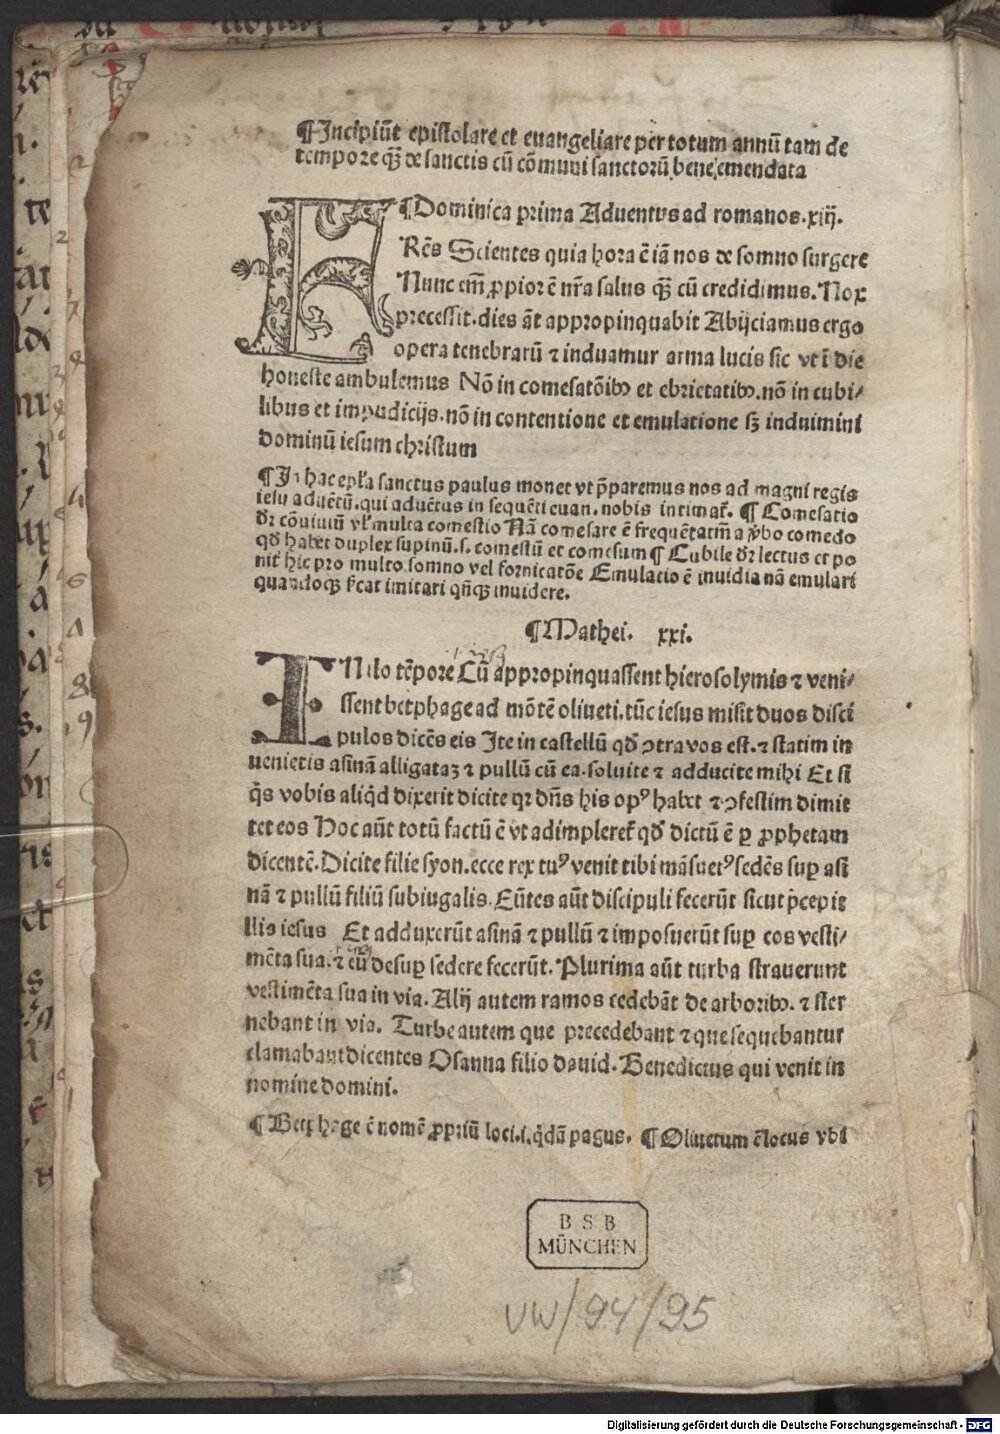 ¶Incipiūt epistolare et euangeliare per totum annū tam de
tempore q̄ꝫ de sanctis cū cōmuni sanctorū bene emendata
¶Dominica prima Aduentus ad romanos.xiij.
FRēs Scientes quia hora ē iā nos de somno surgere
Nunc em̄ ꝓpior ē nr̄a salus q̄ꝫ cū credidimus. Nox
precessit. dies āt appropinquabit Abijciamus ergo
opera tenebrarū ⁊ induamur arma lucis sic vt ī die
honeste ambulemus Nō in comesatōibꝰ et ebrietatibꝰ. nō in cubi/
libus et impudicijs. nō in contentione et emulatione sꝫ induimini
dominū iesum christum
¶In hac epl̄a sanctus paulus monet vt p̄paremus nos ad magni regis
iesu aduētū. qui aduētus in sequēti euan. nobis intimat̄. ¶ Comesatio
dr̄ cōuiuiū vl̓ multa comestio Nā comesare ē frequētatm̄ a v̓bo comedo
qd̄ habet duplex supinū. s. comestū et comesum ¶ Cubile dr̄ lectus et po
nit̄ hic pro multo somno vel fornicatōe Emulatio ē inuidia nā emulari
quandoqꝫ imitari qn̄qꝫ inuidere.
¶Mathei. xxi.
IN illo tēpore Cū appropinquassent hierosolymis ⁊ veni/
ssent betphage ad mōtē oliueti. tūc iesus misit duos disci
pulos dicēs eis Ite in castellū qd̄ ꝯtra vos est. ⁊ statim in
uenietis asinā alligataꝫ ⁊ pullū cū ea. soluite ⁊ adducite mihi Et si
q̄s vobis aliq̄d dixerit dicite qꝛ dn̄s his opꝰ habet ⁊ ꝯfestim dimit
tet eos Hoc aūt totū factū ē vt adimpleret̄ qd̄ dictū ē ꝑ ꝓphetam
dicentē. Dicite filie syon. ecce rex tuꝰ venit tibi māsuetꝰ sedēs suꝑ asi
nā ⁊ pullū filiū subiugalis. Eūtes aūt discipuli fecerūt sicut p̄cepit
illis iesus Et adduxerūt asinā ⁊ pullū ⁊ imposuerūt suꝑ eos vesti/
mēta sua. ⁊ eū desuꝑ sedere fecerūt. Plurima aūt turba strauerunt
vestimēta sua in via. Alij autem ramos cedebāt de arboribꝰ. ⁊ ster
nebant in via. Turbe autem que precedebant ⁊ que sequebantur
clamabant dicentes Osanna filio dauid. Benedictus qui venit in
nomine domini.
¶Betphage ē nomē ꝓpriū loci. i. q̄dā pagus. ¶Oliuetum ē locus vbi
B S B
MÜNCHEN
VW/94/95
Digitalisierung gefördert durch die Deutsche Forschungsgemeinschaft - DFG